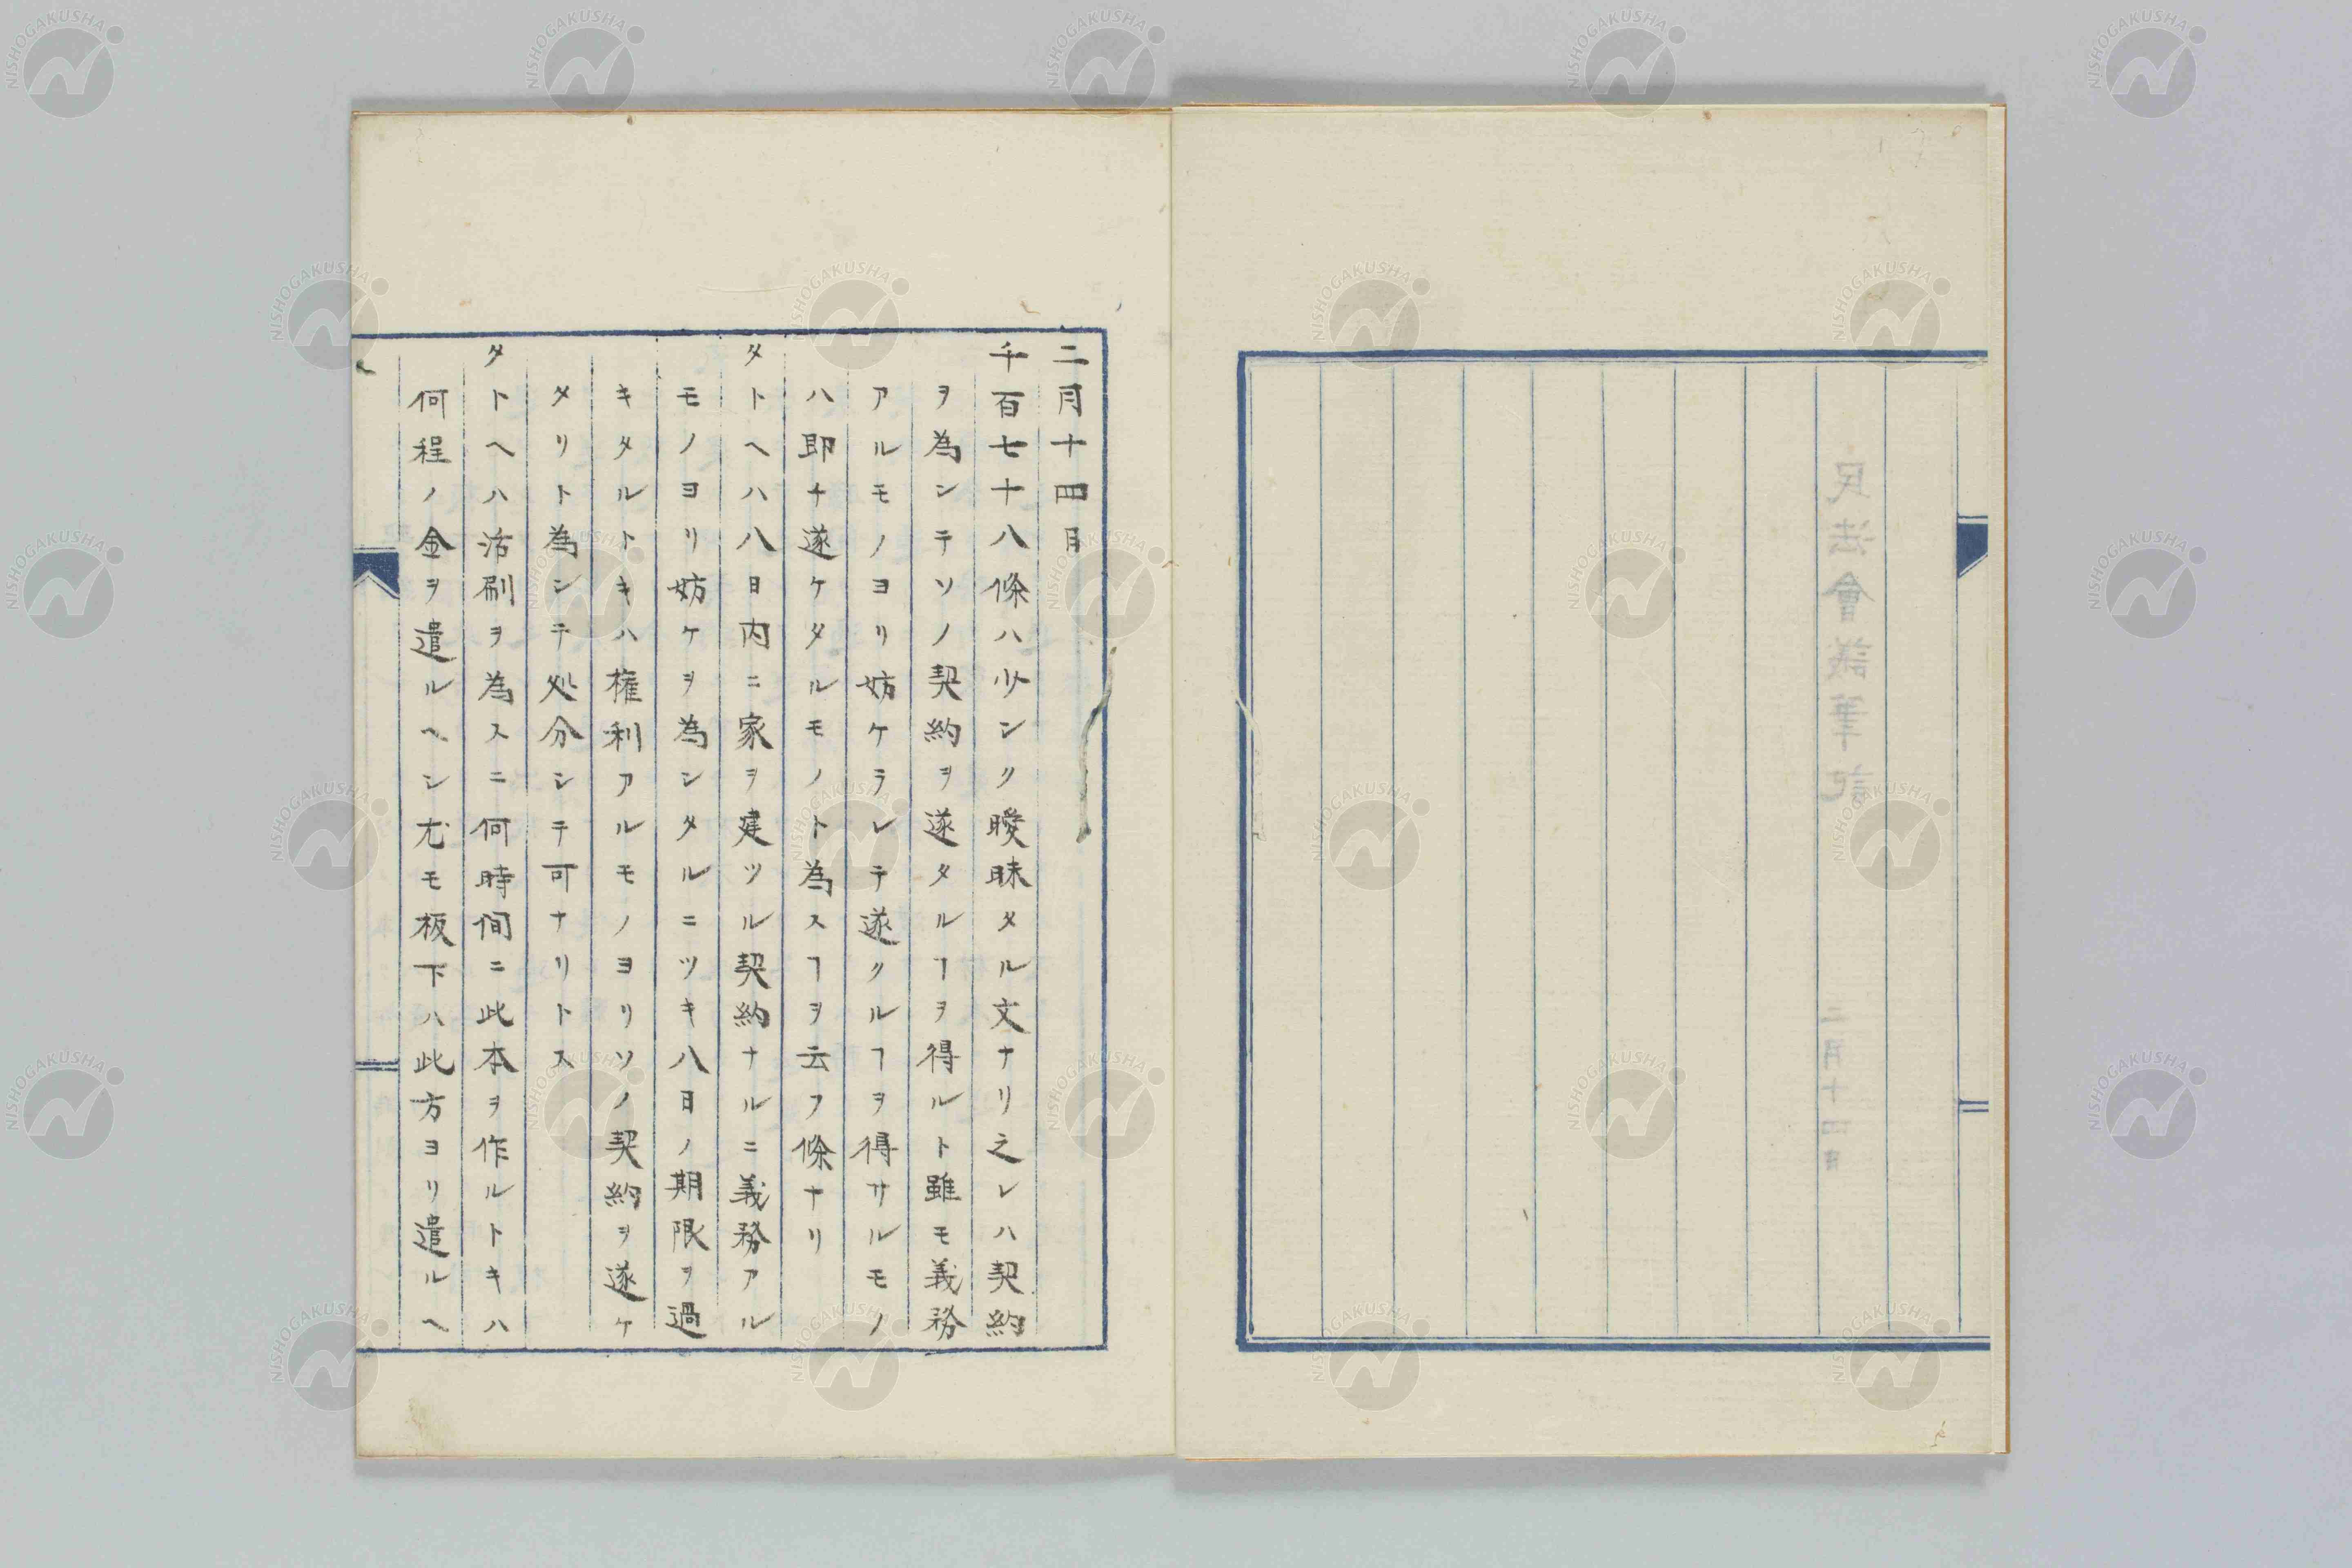 民法會議筆記 二月十四日
二月十四日
千百七十八條ハ少シク曖昧タル文ナリ之レハ契約
ヲ為シテソノ契約ヲ遂タルヿヲ得ルト雖モ義務
アルモノヨリ妨ケラレテ遂クルヿヲ得サルモノ
ハ即チ遂ケタルモノト為スヿヲ云フ條ナリ
タトヘハ八日内ニ家ヲ建ツル契約ナルニ義務アル
モノヨリ妨ケヲ為シタルニツキ八日ノ期限ヲ過
キタルトキハ権利アルモノヨリソノ契約ヲ遂ケ
タリト為シテ処分シテ可ナリトス
タトヘハ活刷ヲ為スニ何時間ニ此本ヲ作ルトキハ
何程ノ金ヲ遣ルヘシ尤モ板下ハ此方ヨリ遣ルヘ
NISHOGAKUSHA